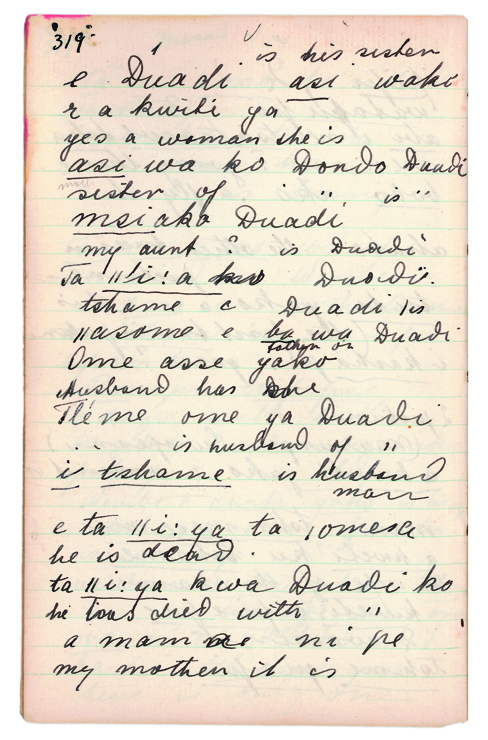 319
is his sister
e Duadi asi wako
r a kwiti ya
yes a woman she is
asi wa ko Dondo Duadi
sister of is " is "
msiako Duadi
my aunt ? is Duadi
Ta //i: a Duadi
tshame e Duadi is
//asome e ba wa Duadi
father of
Ome asse yako
Husband has she
Tleme ome ya Duadi
is husband of "
i tshame is husband
man
e ta //i: ya ta /omesa
he is dead.
ta //i: ya kwa Duadi ko
he was died with "
a mama ni pe
my mother it is